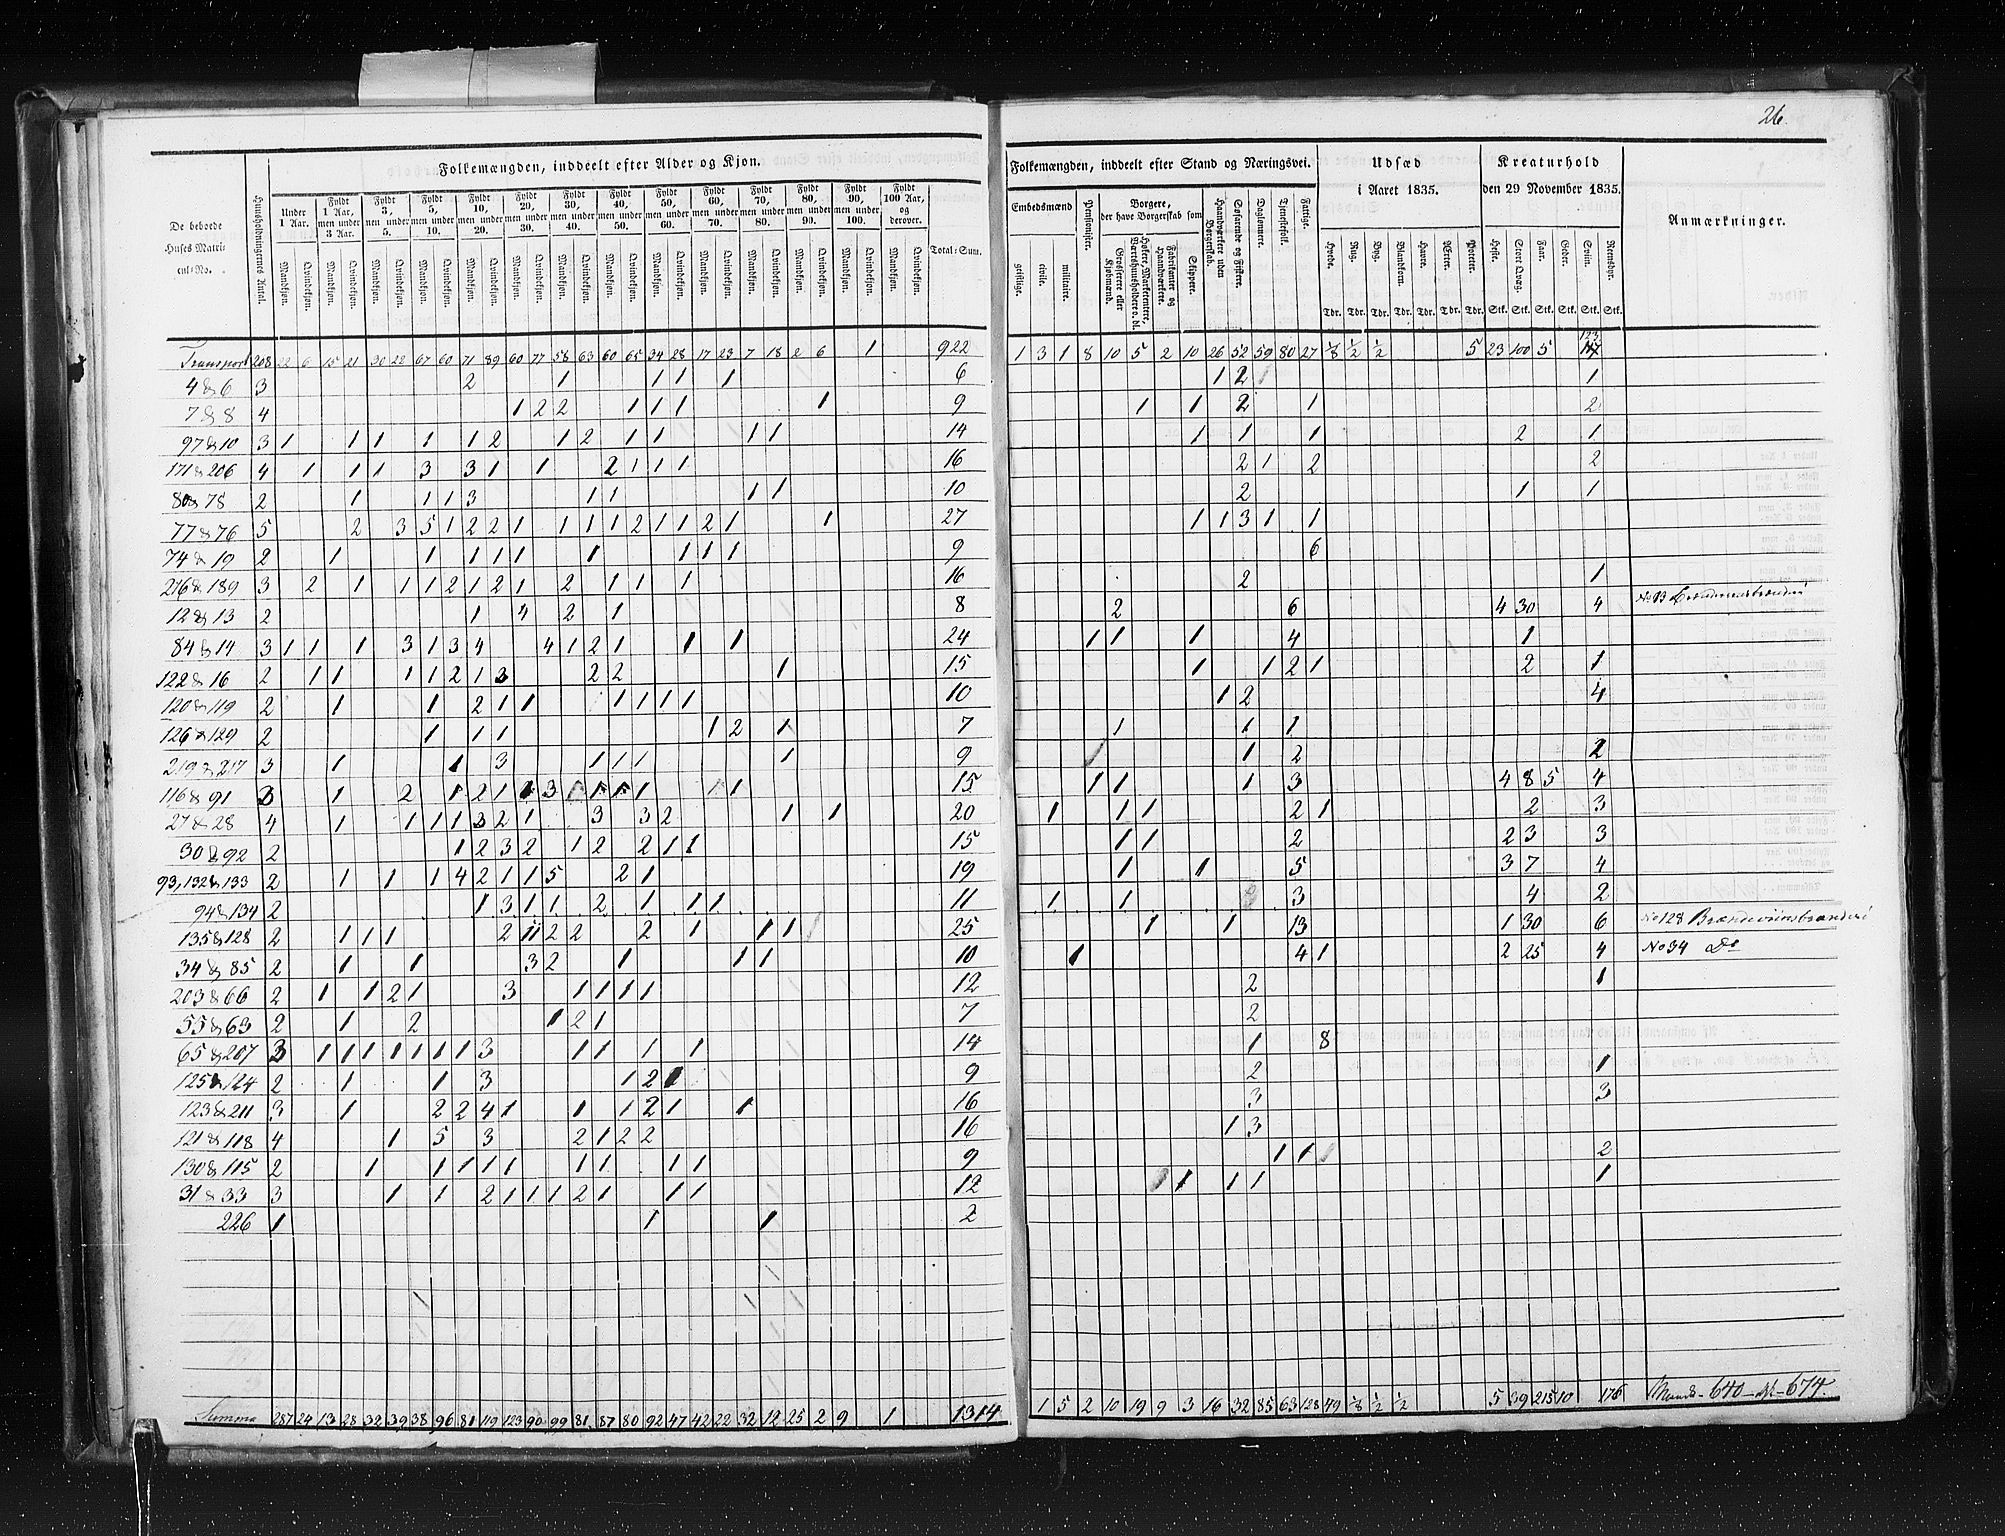 26.
Folkemængden, inddeelt efter Alder og Kjøn.
De beboede Huses Matricul-No.
Huusholdningernes Antal.
Under 1 Aar.
Fyldt 1 Aar, men under 3 Aar.
Fyldt 3, men under 5.
Fyldt 5, men under 10.
Fyldt 10, men under 20.
Fyldt 20, men under 30.
Fyldt 30, men under 40.
Fyldt 40, men under 50.
Fyldt 50, men under 60.
Fyldt 60, men under 70.
Fyldt 70, men under 80.
Fyldt 80, men under 90.
Fyldt 90, men under 100.
Fyldt 100 Aar, og derover.
Mandkjøn. Qvindekjøn.
Total-Sum.
Folkemængden, inddeelt efter Stand og Næringsvei.
Embedsmænd
geistlige. civile. militaire.
Pensionister.
Borgere, der have Borgerskab som
Grosserere eller Kjøbmænd.
Høkere, Marketentere, Værtshuusholdere o. dl.
Fabrikanter og Haandværkere.
Skippere.
Haandværkere uden Borgerskab.
Søfarende og Fiskere.
Daglønnere.
Tjenestefolk.
Fattige.
Udsæd i Aaret 1835.
Hvede. Rug. Byg. Blandkorn. Havre. Ærter. Poteter.
Tdr. Tdr. Tdr. Tdr. Tdr. Tdr. Tdr.
Kreaturhold den 29 November 1835.
Heste. Stort Qvæg. Faar. Geder. Sviin. Reensdyr.
Stk. Stk. Stk. Stk. Stk. Stk.
Anmærkninger.
Transport 208 22 6 15 21 30 22 67 60 71 89 60 77 58 63 60 65 34 28 17 23 7 18 2 6 1 922 1 3 1 8 10 5 2 10 26 52 59 80 27 1/8 1/2 1/2 5 23 100 5 123
4 & 6 3 2 1 1 1 1 6 1 2 1
7 & 8 4 1 2 2 1 1 1 1 9 1 1 2 1 2
97 & 10 3 1 1 1 1 1 2 1 2 1 1 1 1 14 1 1 1 2 1
171 & 206 4 1 1 1 3 3 1 1 2 1 1 1 16 2 1 2 2
80 & 78 2 1 1 1 3 1 1 1 1 10 2 1 1
77 & 76 5 2 3 5 1 2 2 1 1 1 1 2 1 1 2 1 1 27 1 1 3 1 1
74 & 19 2 1 1 1 1 1 1 1 1 1 9 6
216 & 189 3 2 1 1 1 2 1 2 1 2 1 1 1 16 2 1
12 & 13 2 1 4 2 1 8 2 6 4 30 4 No 13
84 & 14 3 1 1 1 3 1 3 4 4 1 2 1 1 1 24 1 1 1 4 1
122 & 16 2 1 1 1 1 2 1 3 2 2 1 15 1 1 2 1 2 1
120 & 119 2 1 1 2 1 1 1 1 1 1 10 1 2 4
126 & 129 2 1 1 1 1 2 1 7 1 1 1
219 & 217 3 1 1 3 1 1 1 1 9 1 2 2
116 & 91 3 1 2 1 2 1 1 3 1 1 1 1 15 1 1 1 3 4 8 5 4
27 & 28 4 1 1 1 1 3 2 1 3 3 2 1 1 20 1 1 1 2 1 2 3
30 & 92 2 1 2 3 2 1 2 2 1 1 15 1 1 2 2 3 3
93, 132 & 133 2 1 1 1 4 2 1 1 5 2 1 19 1 1 5 3 7 4
94 & 134 2 1 3 1 1 2 1 1 1 11 1 1 3 4 2
135 & 128 2 1 1 1 2 11 2 2 2 1 1 1 25 1 1 13 1 30 6 No 128 Brændeviinsbrænderi
34 & 85 2 1 1 3 2 1 1 1 10 1 4 1 2 25 4 No 34 Do
203 & 66 2 1 1 2 1 3 1 1 1 1 12 2 1
55 & 63 2 1 2 1 2 1 7 2
65 & 207 3 1 1 1 1 1 1 1 3 1 1 1 1 14 1 8
125 & 124 2 1 1 3 1 2 1 9 2 1
123 & 211 3 1 2 2 4 1 1 1 2 1 1 16 3 3
121 & 118 4 1 5 3 2 1 2 2 16 1 3
130 & 115 2 1 1 1 1 1 1 1 1 1 9 1 1 2
31 & 33 3 1 1 2 1 1 1 2 1 1 1 12 1 1 1 1
226 1 1 1 2
Summa 287 24 13 28 32 39 38 96 81 119 123 90 99 81 87 80 92 47 42 22 32 12 25 2 9 1 1314 1 5 2 10 19 9 3 16 32 85 63 128 49 1/8 1/2 1/2 5 39 215 10 176 640 674.